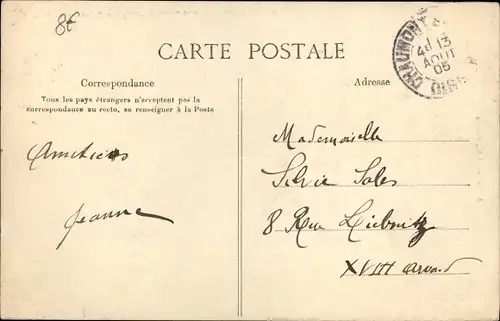 8€
CARTE POSTALE
CHAUMONT
4ᵉ 13
AOUT
05
OISE
Correspondance
Tous les pays étrangers n'acceptent pas la
correspondance au recto, se renseigner à la Poste
Adresse
Amitiés
Jeanne
Mademoiselle
Silvie Sales
8 Rue Liebnitz
XVIII